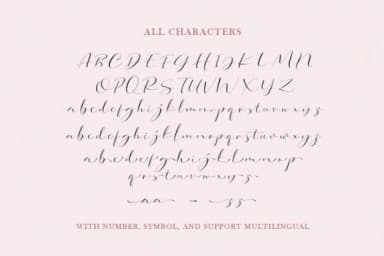 ALL CHARACTERS
ABCDEFGHIJKLMN
OPQRSTUVWXYZ
abcdefghijklmnopqrstuvwxyz
abcdefghijklmnopqrstuvwxyz
abcdefghijklmnop
qrstuvwxyz
aa - zz
WITH NUMBER, SYMBOL, AND SUPPORT MULTILINGUAL